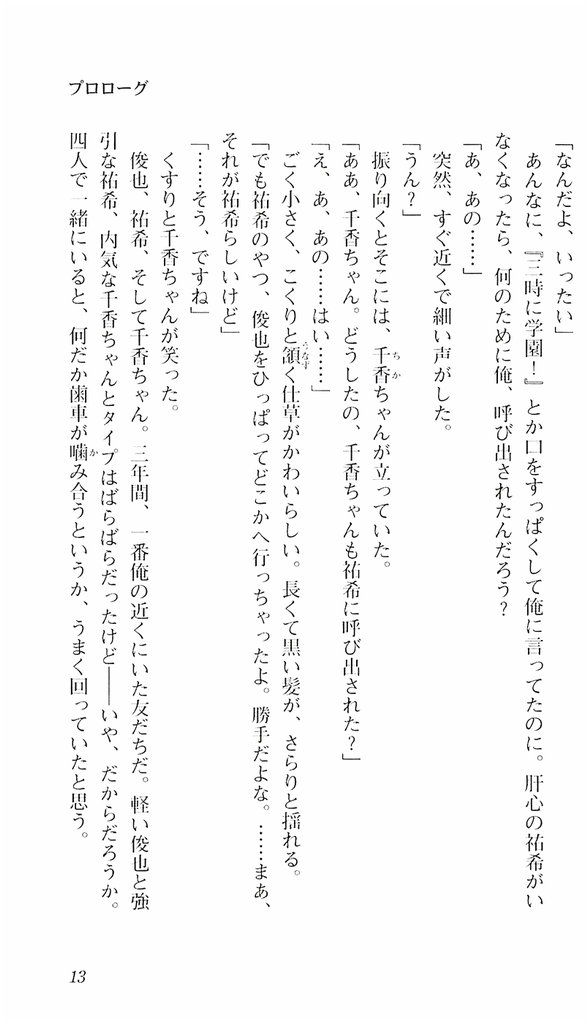 プロローグ
「なんだよ、いったい」
あんなに、『三時に学園！』とか口をすっぱくして俺に言ってたのに。肝心の祐希がい
なくなったら、何のために俺、呼び出されたんだろう？
「あ、あの……」
突然、すぐ近くで細い声がした。
「うん？」
振り向くとそこには、千香ちゃんが立っていた。
「ああ、千香ちゃん。どうしたの、千香ちゃんも祐希に呼び出された？」
「え、あ、あの……はい……」
ごく小さく、こくりと頷く仕草がかわいらしい。長くて黒い髪が、さらりと揺れる。
「でも祐希のやつ、俊也をひっぱってどこかへ行っちゃったよ。勝手だよな。……まあ、
それが祐希らしいけど」
「……そう、ですね」
くすりと千香ちゃんが笑った。
俊也、祐希、そして千香ちゃん。三年間、一番俺の近くにいた友だちだ。軽い俊也と強
引な祐希、内気な千香ちゃんとタイプはばらばらだったけど――いや、だからだろうか。
四人で一緒にいると、何だか歯車が噛み合うというか、うまく回っていたと思う。
13